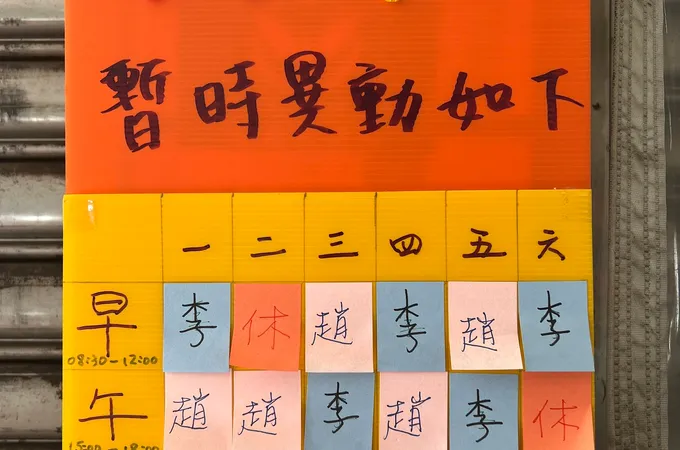 暫時異動如下
一 二 三 四 五 六
早 李 休 趙 李 趙 李
08:30-12:00
午 趙 趙 李 趙 李 休
15:00-18:00